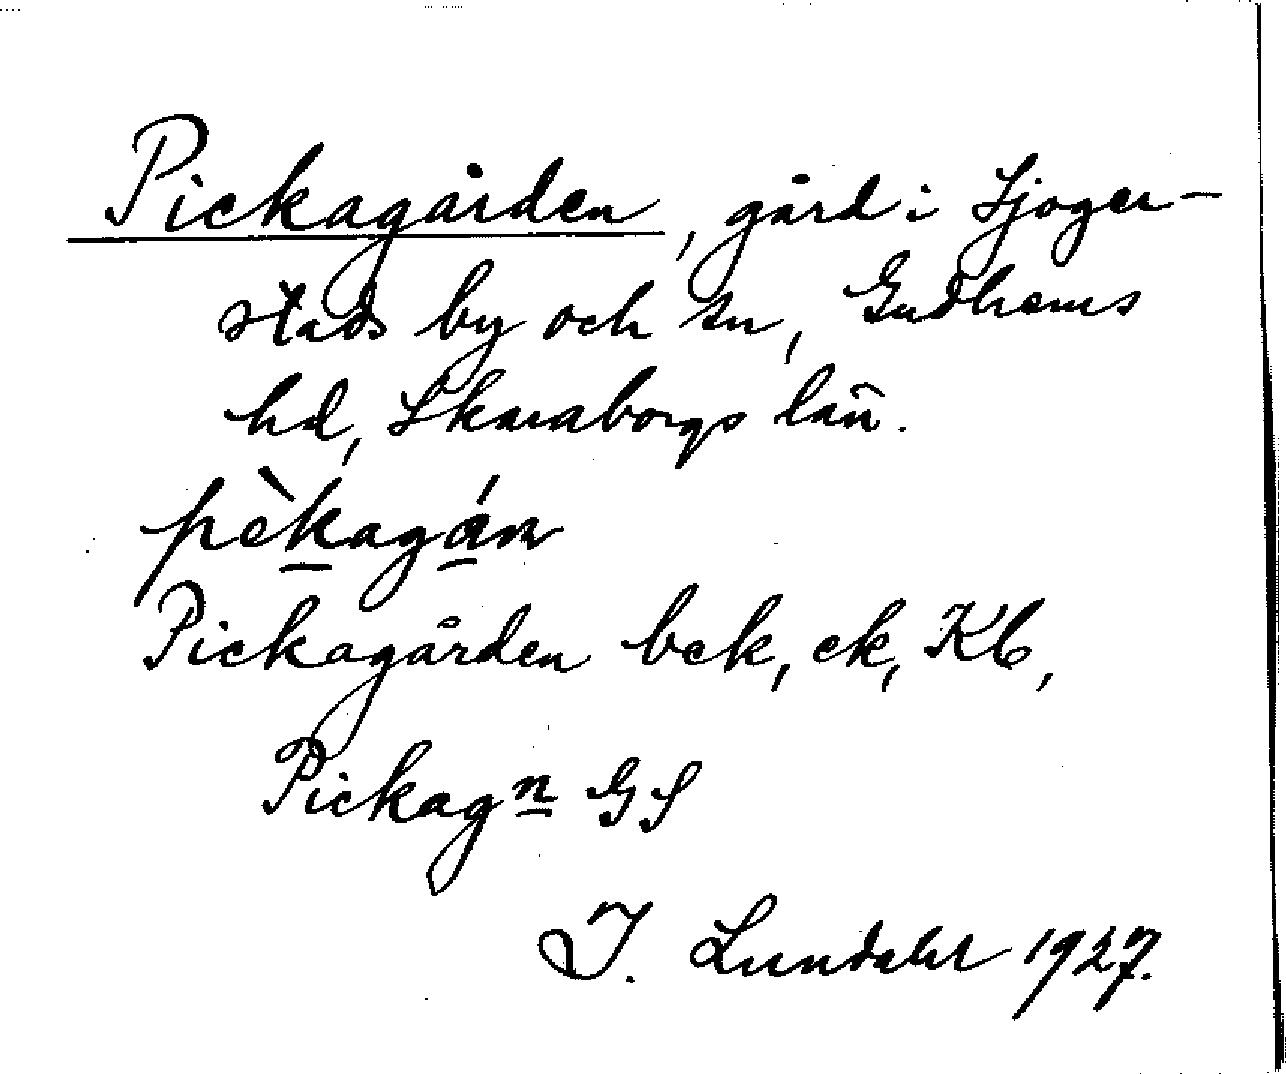 Pickagården, gård i Sjoger-
stads by och sn, Gudhems
hd, Skaraborgs län.
pèkagán
Pickagården bek, ek, Kb,
Pickagn GS
I. Lundahl 1927.